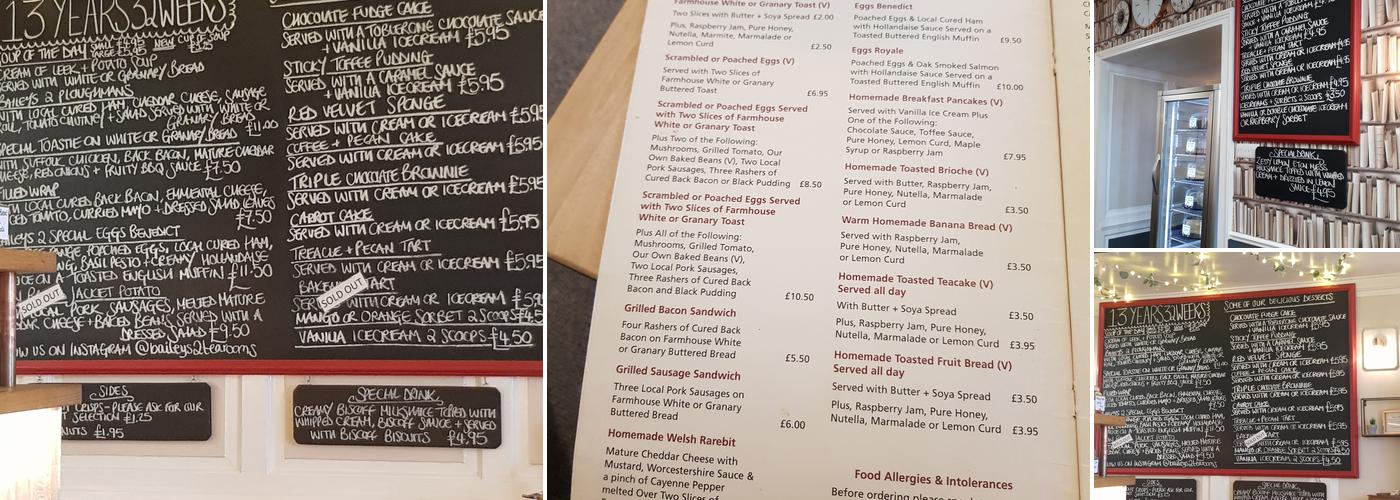 13 YEARS 32 WEEKS
SOUP OF THE DAY
CREAM OF LEEK + POTATO SOUP
SERVED WITH WHITE OR GRANARY BREAD
BAILEYS 2 PLOUGHMANS
WITH LOCAL CURED HAM, CHEDDAR CHEESE, SAUSAGE
ROLL, TOMATO CHUTNEY + SALAD SERVED WITH WHITE OR
GRANARY BREAD £11.00
SPECIAL TOASTIE ON WHITE OR GRANARY BREAD
WITH SUFFOLK CHICKEN, BACK BACON, MATURE CHEDDAR
CHEESE, RED ONIONS + FRUITY BBQ SAUCE £7.50
FILLED WRAP
WITH LOCAL CURED BACK BACON, EMMENTAL CHEESE,
TOMATO, CURRIED MAYO + DRESSED SALAD LEAVES
£7.50
BAILEYS 2 SPECIAL EGGS BENEDICT
POACHED EGGS, LOCAL CURED HAM,
BASIL PESTO + CREAMY HOLLANDAISE
ON A TOASTED ENGLISH MUFFIN £11.50
JACKET POTATO
SOLD OUT
LOCAL PORK SAUSAGES, MELTED MATURE
CHEDDAR CHEESE + BAKED BEANS SERVED WITH A
DRESSED SALAD £9.50
FOLLOW US ON INSTAGRAM @baileys2tearooms
CHOCOLATE FUDGE CAKE
SERVED WITH A TOBLERONE CHOCOLATE SAUCE
+ VANILLA ICECREAM £5.95
STICKY TOFFEE PUDDING
SERVED WITH A CARAMEL SAUCE
+ VANILLA ICECREAM £5.95
RED VELVET SPONGE
SERVED WITH CREAM OR ICECREAM £5.95
COFFEE + PECAN CAKE
SERVED WITH CREAM OR ICECREAM £5.95
TRIPLE CHOCOLATE BROWNIE
SERVED WITH CREAM OR ICECREAM £5.95
CARROT CAKE
SERVED WITH CREAM OR ICECREAM £5.95
TREACLE + PECAN TART
SERVED WITH CREAM OR ICECREAM £5.95
TART
SOLD OUT
WITH CREAM OR ICECREAM £5.95
MANGO OR ORANGE SORBET 2 SCOOPS £4.50
VANILLA ICECREAM 2 SCOOPS £4.50
SIDES
CRISPS - PLEASE ASK FOR OUR
SELECTION £1.25
NUTS £1.95
SPECIAL DRINK
CREAMY BISCOFF MILKSHAKE TOPPED WITH
WHIPPED CREAM, BISCOFF SAUCE + SERVED
WITH BISCOFF BISCUITS £4.95
Farmhouse White or Granary Toast (V)
Two Slices with Butter + Soya Spread £2.00
Plus, Raspberry Jam, Pure Honey,
Nutella, Marmite, Marmalade or
Lemon Curd £2.50
Scrambled or Poached Eggs (V)
Served with Two Slices of
Farmhouse White or Granary
Buttered Toast £6.95
Scrambled or Poached Eggs Served
with Two Slices of Farmhouse
White or Granary Toast
Plus Two of the Following:
Mushrooms, Grilled Tomato, Our
Own Baked Beans (V), Two Local
Pork Sausages, Three Rashers of
Cured Back Bacon or Black Pudding £8.50
Scrambled or Poached Eggs Served
with Two Slices of Farmhouse
White or Granary Toast
Plus All of the Following:
Mushrooms, Grilled Tomato,
Our Own Baked Beans (V),
Two Local Pork Sausages,
Three Rashers of Cured Back
Bacon and Black Pudding £10.50
Grilled Bacon Sandwich
Four Rashers of Cured Back
Bacon on Farmhouse White
or Granary Buttered Bread £5.50
Grilled Sausage Sandwich
Three Local Pork Sausages on
Farmhouse White or Granary
Buttered Bread £6.00
Homemade Welsh Rarebit
Mature Cheddar Cheese with
Mustard, Worcestershire Sauce &
a pinch of Cayenne Pepper
melted Over Two Slices of
Eggs Benedict
Poached Eggs & Local Cured Ham
with Hollandaise Sauce Served on a
Toasted Buttered English Muffin £9.50
Eggs Royale
Poached Eggs & Oak Smoked Salmon
with Hollandaise Sauce Served on a
Toasted Buttered English Muffin £10.00
Homemade Breakfast Pancakes (V)
Served with Vanilla Ice Cream Plus
One of the Following:
Chocolate Sauce, Toffee Sauce,
Pure Honey, Lemon Curd, Maple
Syrup or Raspberry Jam £7.95
Homemade Toasted Brioche (V)
Served with Butter, Raspberry Jam,
Pure Honey, Nutella, Marmalade
or Lemon Curd £3.50
Warm Homemade Banana Bread (V)
Served with Raspberry Jam,
Pure Honey, Nutella, Marmalade
or Lemon Curd £3.50
Homemade Toasted Teacake (V)
Served all day
With Butter + Soya Spread £3.50
Plus, Raspberry Jam, Pure Honey,
Nutella, Marmalade or Lemon Curd £3.95
Homemade Toasted Fruit Bread (V)
Served all day
Served with Butter + Soya Spread £3.50
Plus, Raspberry Jam, Pure Honey,
Nutella, Marmalade or Lemon Curd £3.95
Food Allergies & Intolerances
Before ordering please
STICKY TOFFEE PUDDING
SERVED WITH A CARAMEL SAUCE
+ VANILLA ICECREAM £4.95
TREACLE + PECAN TART
SERVED WITH CREAM OR ICECREAM £4.95
RED VELVET SPONGE
SERVED WITH CREAM OR ICECREAM £4.95
TRIPLE CHOCOLATE BROWNIE
SERVED WITH CREAM OR ICECREAM £4.95
ICECREAMS + SORBETS 2 SCOOPS £3.50
VANILLA OR DOUBLE CHOCOLATE ICECREAM
OR RASPBERRY SORBET
SPECIAL DRINK
ZESTY LEMON ETON MESS
MILKSHAKE TOPPED WITH WHIPPED
CREAM + DRIZZLED IN LEMON
SAUCE £4.95
13 YEARS 32 WEEKS
SOME OF OUR DELICIOUS DESSERTS
CHOCOLATE FUDGE CAKE
SERVED WITH A TOBLERONE CHOCOLATE SAUCE
+ VANILLA ICECREAM £5.95
STICKY TOFFEE PUDDING
SERVED WITH A CARAMEL SAUCE
+ VANILLA ICECREAM £5.95
RED VELVET SPONGE
SERVED WITH CREAM OR ICECREAM £5.95
COFFEE + PECAN CAKE
SERVED WITH CREAM OR ICECREAM £5.95
TRIPLE CHOCOLATE BROWNIE
SERVED WITH CREAM OR ICECREAM £5.95
CARROT CAKE
SERVED WITH CREAM OR ICECREAM £5.95
TREACLE + PECAN TART
SERVED WITH CREAM OR ICECREAM £5.95
MANGO OR ORANGE SORBET 2 SCOOPS £4.50
VANILLA ICECREAM 2 SCOOPS £4.50
SIDES
SPECIAL DRINK